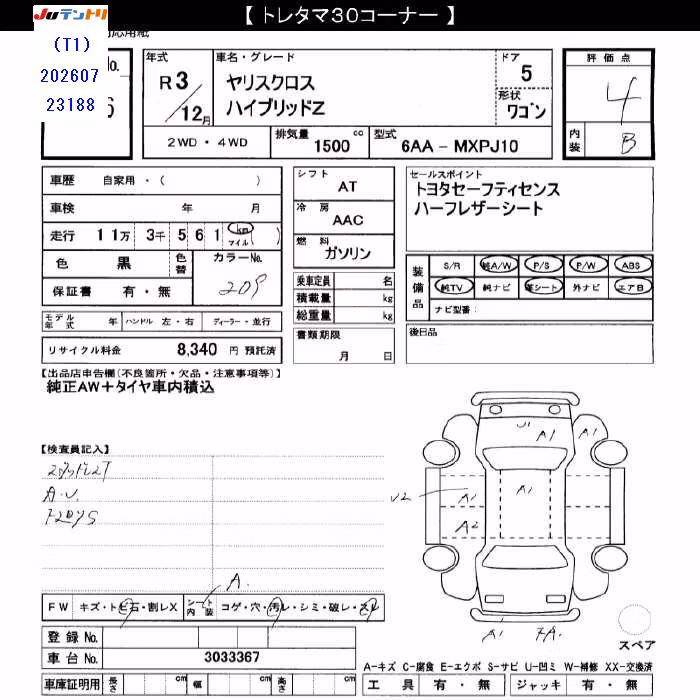 【 トレタマ30コーナー 】
JUテントリ
(T1)
202607
23188
応用紙
No.
6
年式
R3/12月
車名・グレード
ヤリスクロス
ハイブリッドZ
ドア
5
形状
ワゴン
2WD・4WD
排気量
1500 cc
型式
6AA-MXPJ10
評価点
4
内装
B
車歴 自家用・( )
車検 年 月
走行 11万 3千 5 6 1 km マイル ( )
色 黒
色替
カラーNo.
209
保証書 有・無
シフト
AT
冷房
AAC
燃料
ガソリン
乗車定員 名
積載量 kg
総重量 kg
セールスポイント
トヨタセーフティセンス
ハーフレザーシート
装備品
S/R 純A/W P/S P/W ABS
純TV 純ナビ 革シート 外ナビ エアB
ナビ型番:
モデル年式 年 ハンドル 左・右 ディーラー・並行
リサイクル料金 8,340 円 預託済
書類期限
月 日
後日品
【出品店申告欄(不良箇所・欠品・注意事項等)】
純正AW+タイヤ車内積込
【検査員記入】
A.U.
A.
FW キズ・トビ石・割レX シート内装 コゲ・穴・汚レ・シミ・破レ・スレ
U1
A1
A1
U2
A1
A1
A2
A1
スペア
登録No.
車台No. 3033367
車庫証明用 長さ cm 幅 cm 高さ cm
A-キズ C-腐食 E-エクボ S-サビ U-凹ミ W-補修 XX-交換済
工具 有・無 ジャッキ 有・無